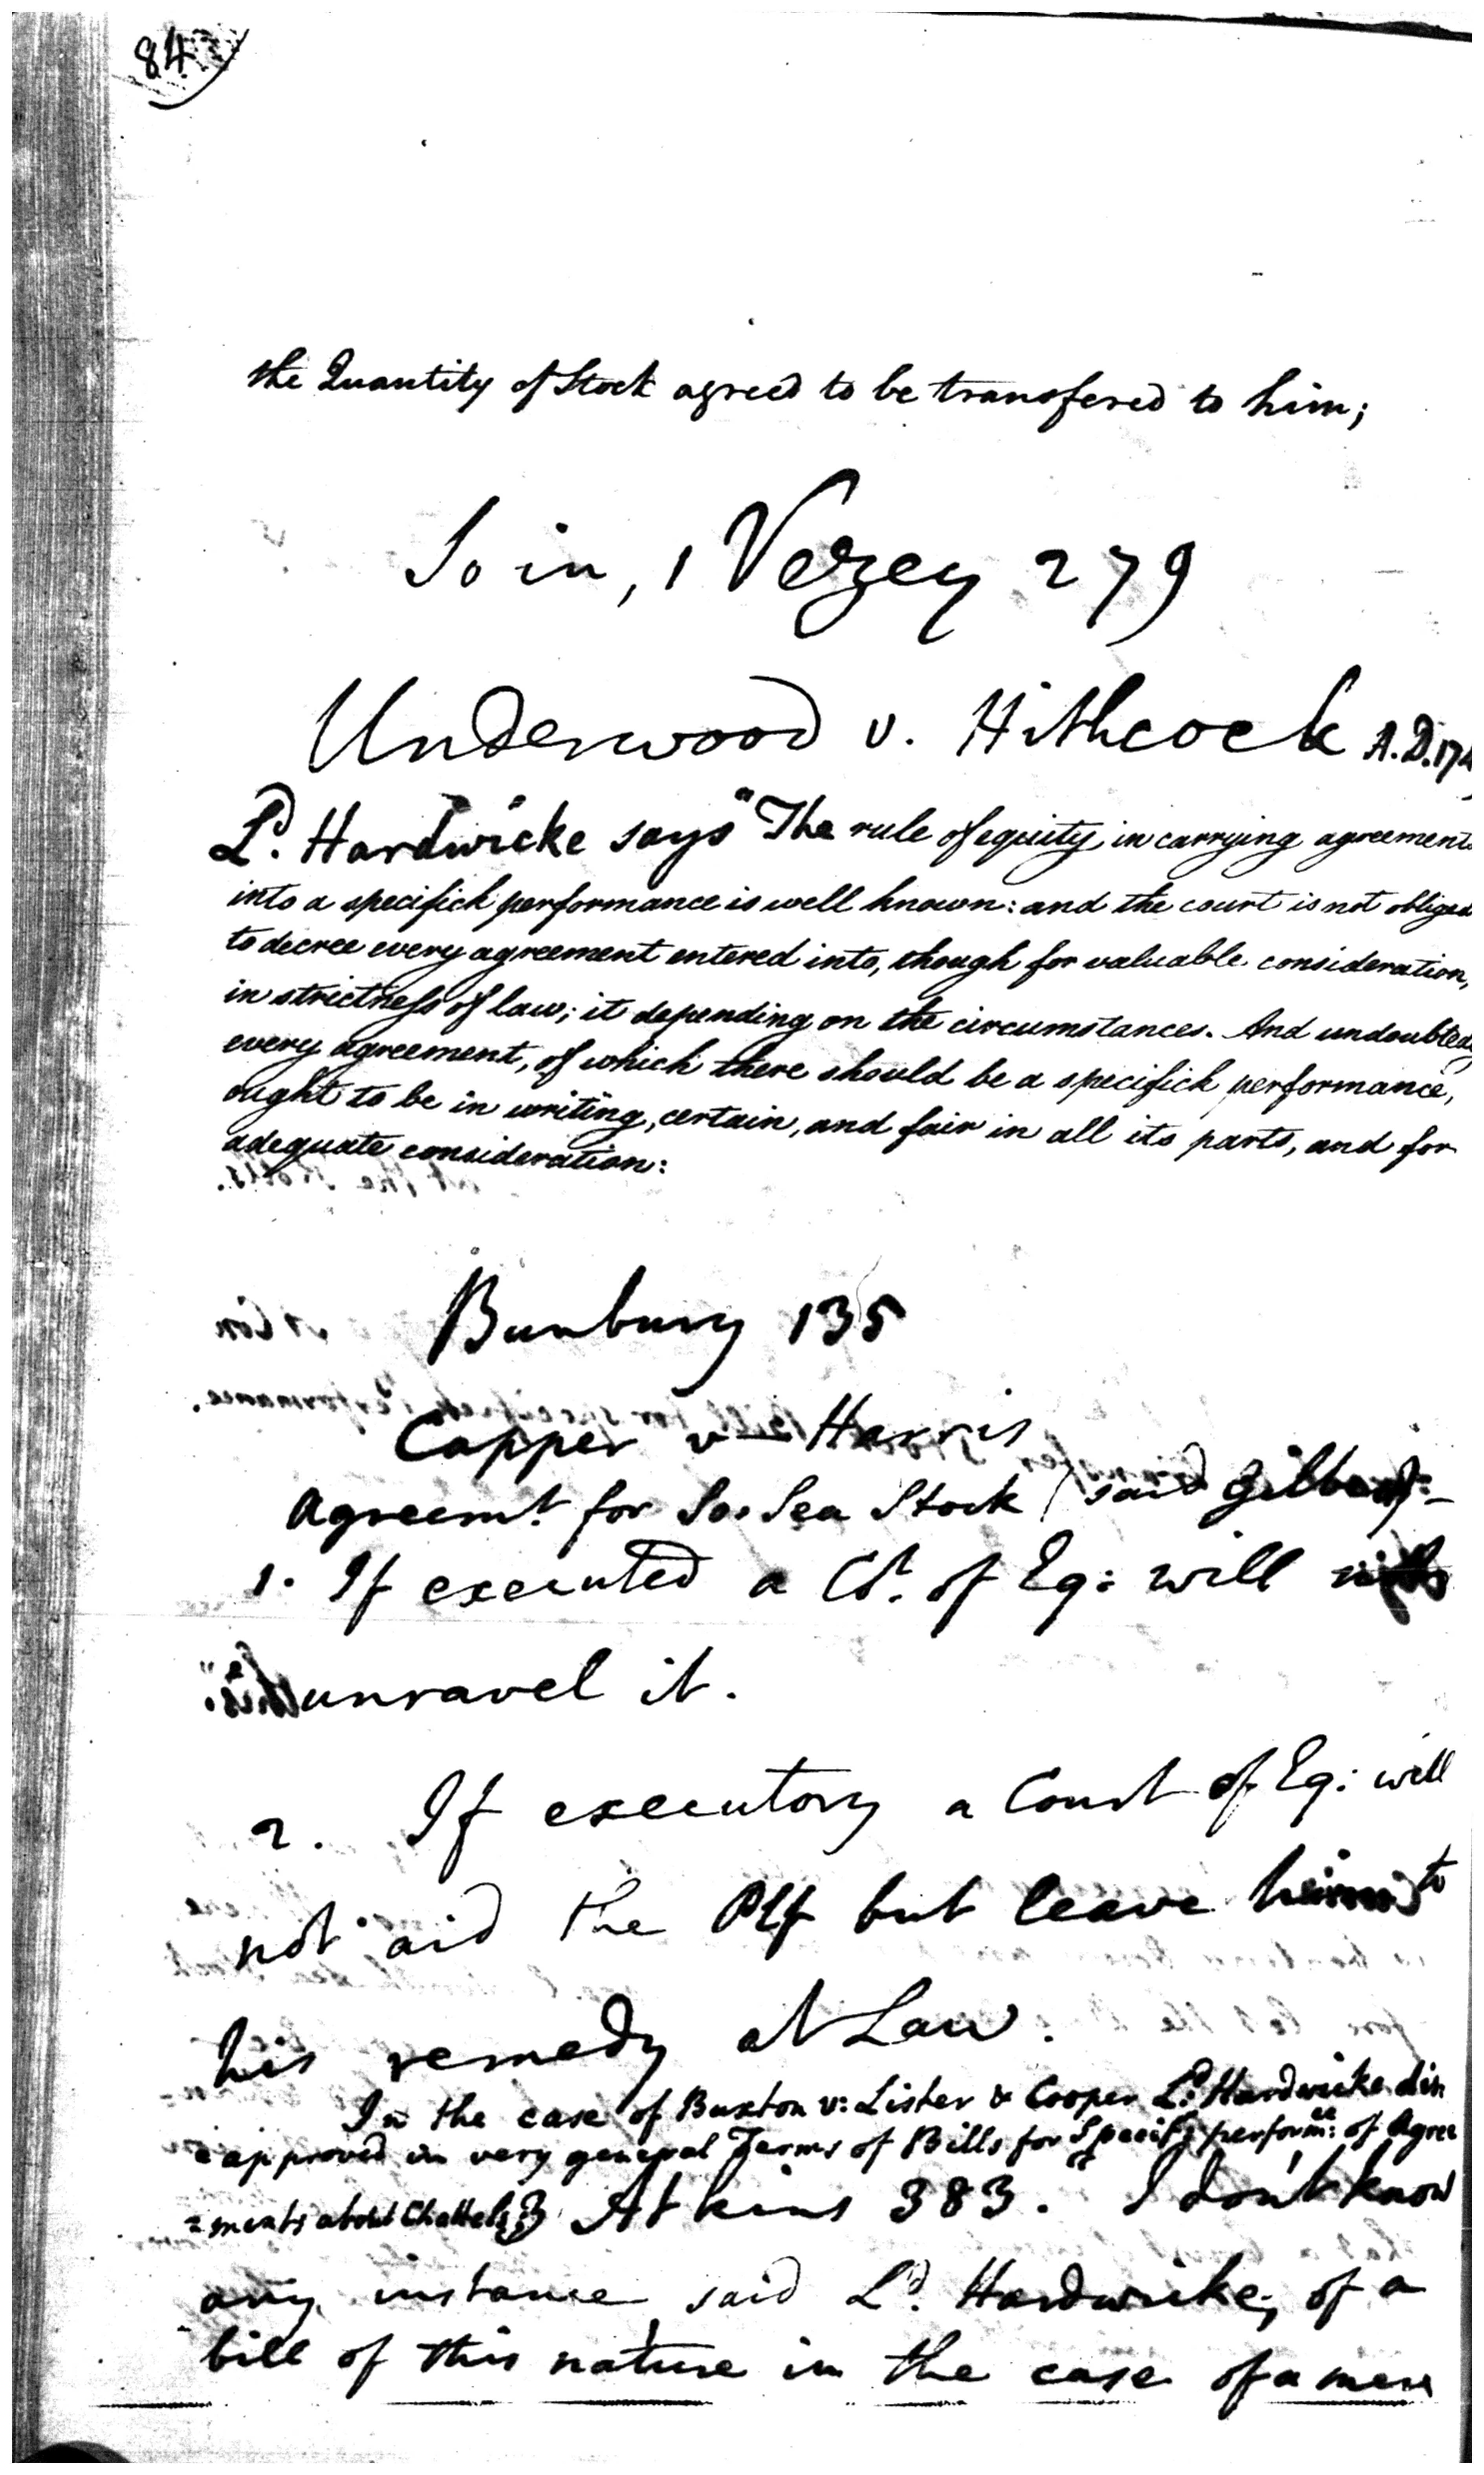 84
the Quantity of Stock agreed to be transfered to him;
So in, 1 Vezey 279
Underwood v. Hithcock A.D. 174
Ld. Hardwicke says "The rule of equity in carrying agreements
into a specifick performance is well known: and the court is not obliged
to decree every agreement entered into, though for valuable consideration,
in strictness of law; it depending on the circumstances. And undoubtedly
every agreement, of which there should be a specifick performance,
ought to be in writing, certain, and fair in all its parts, and for
adequate consideration:
Bunbury 135
Capper v Harris
Agreemt. for So. Sea Stock said Gilbert:
1. If executed a Ct. of Eq: will
unravel it.
2. If executory a Court of Eq: will
not aid the Plf but leave him to
his remedy at Law.
In the case of Buxton v: Lister & Cooper Ld. Hardwicke dis
=approved in very general Terms of Bills for Specif performce: of Agree
=ments about Chattels; 3 Atkins 383. "I don't know
any instance, said Ld. Hardwicke, of a
bill of this nature in the case of a mere